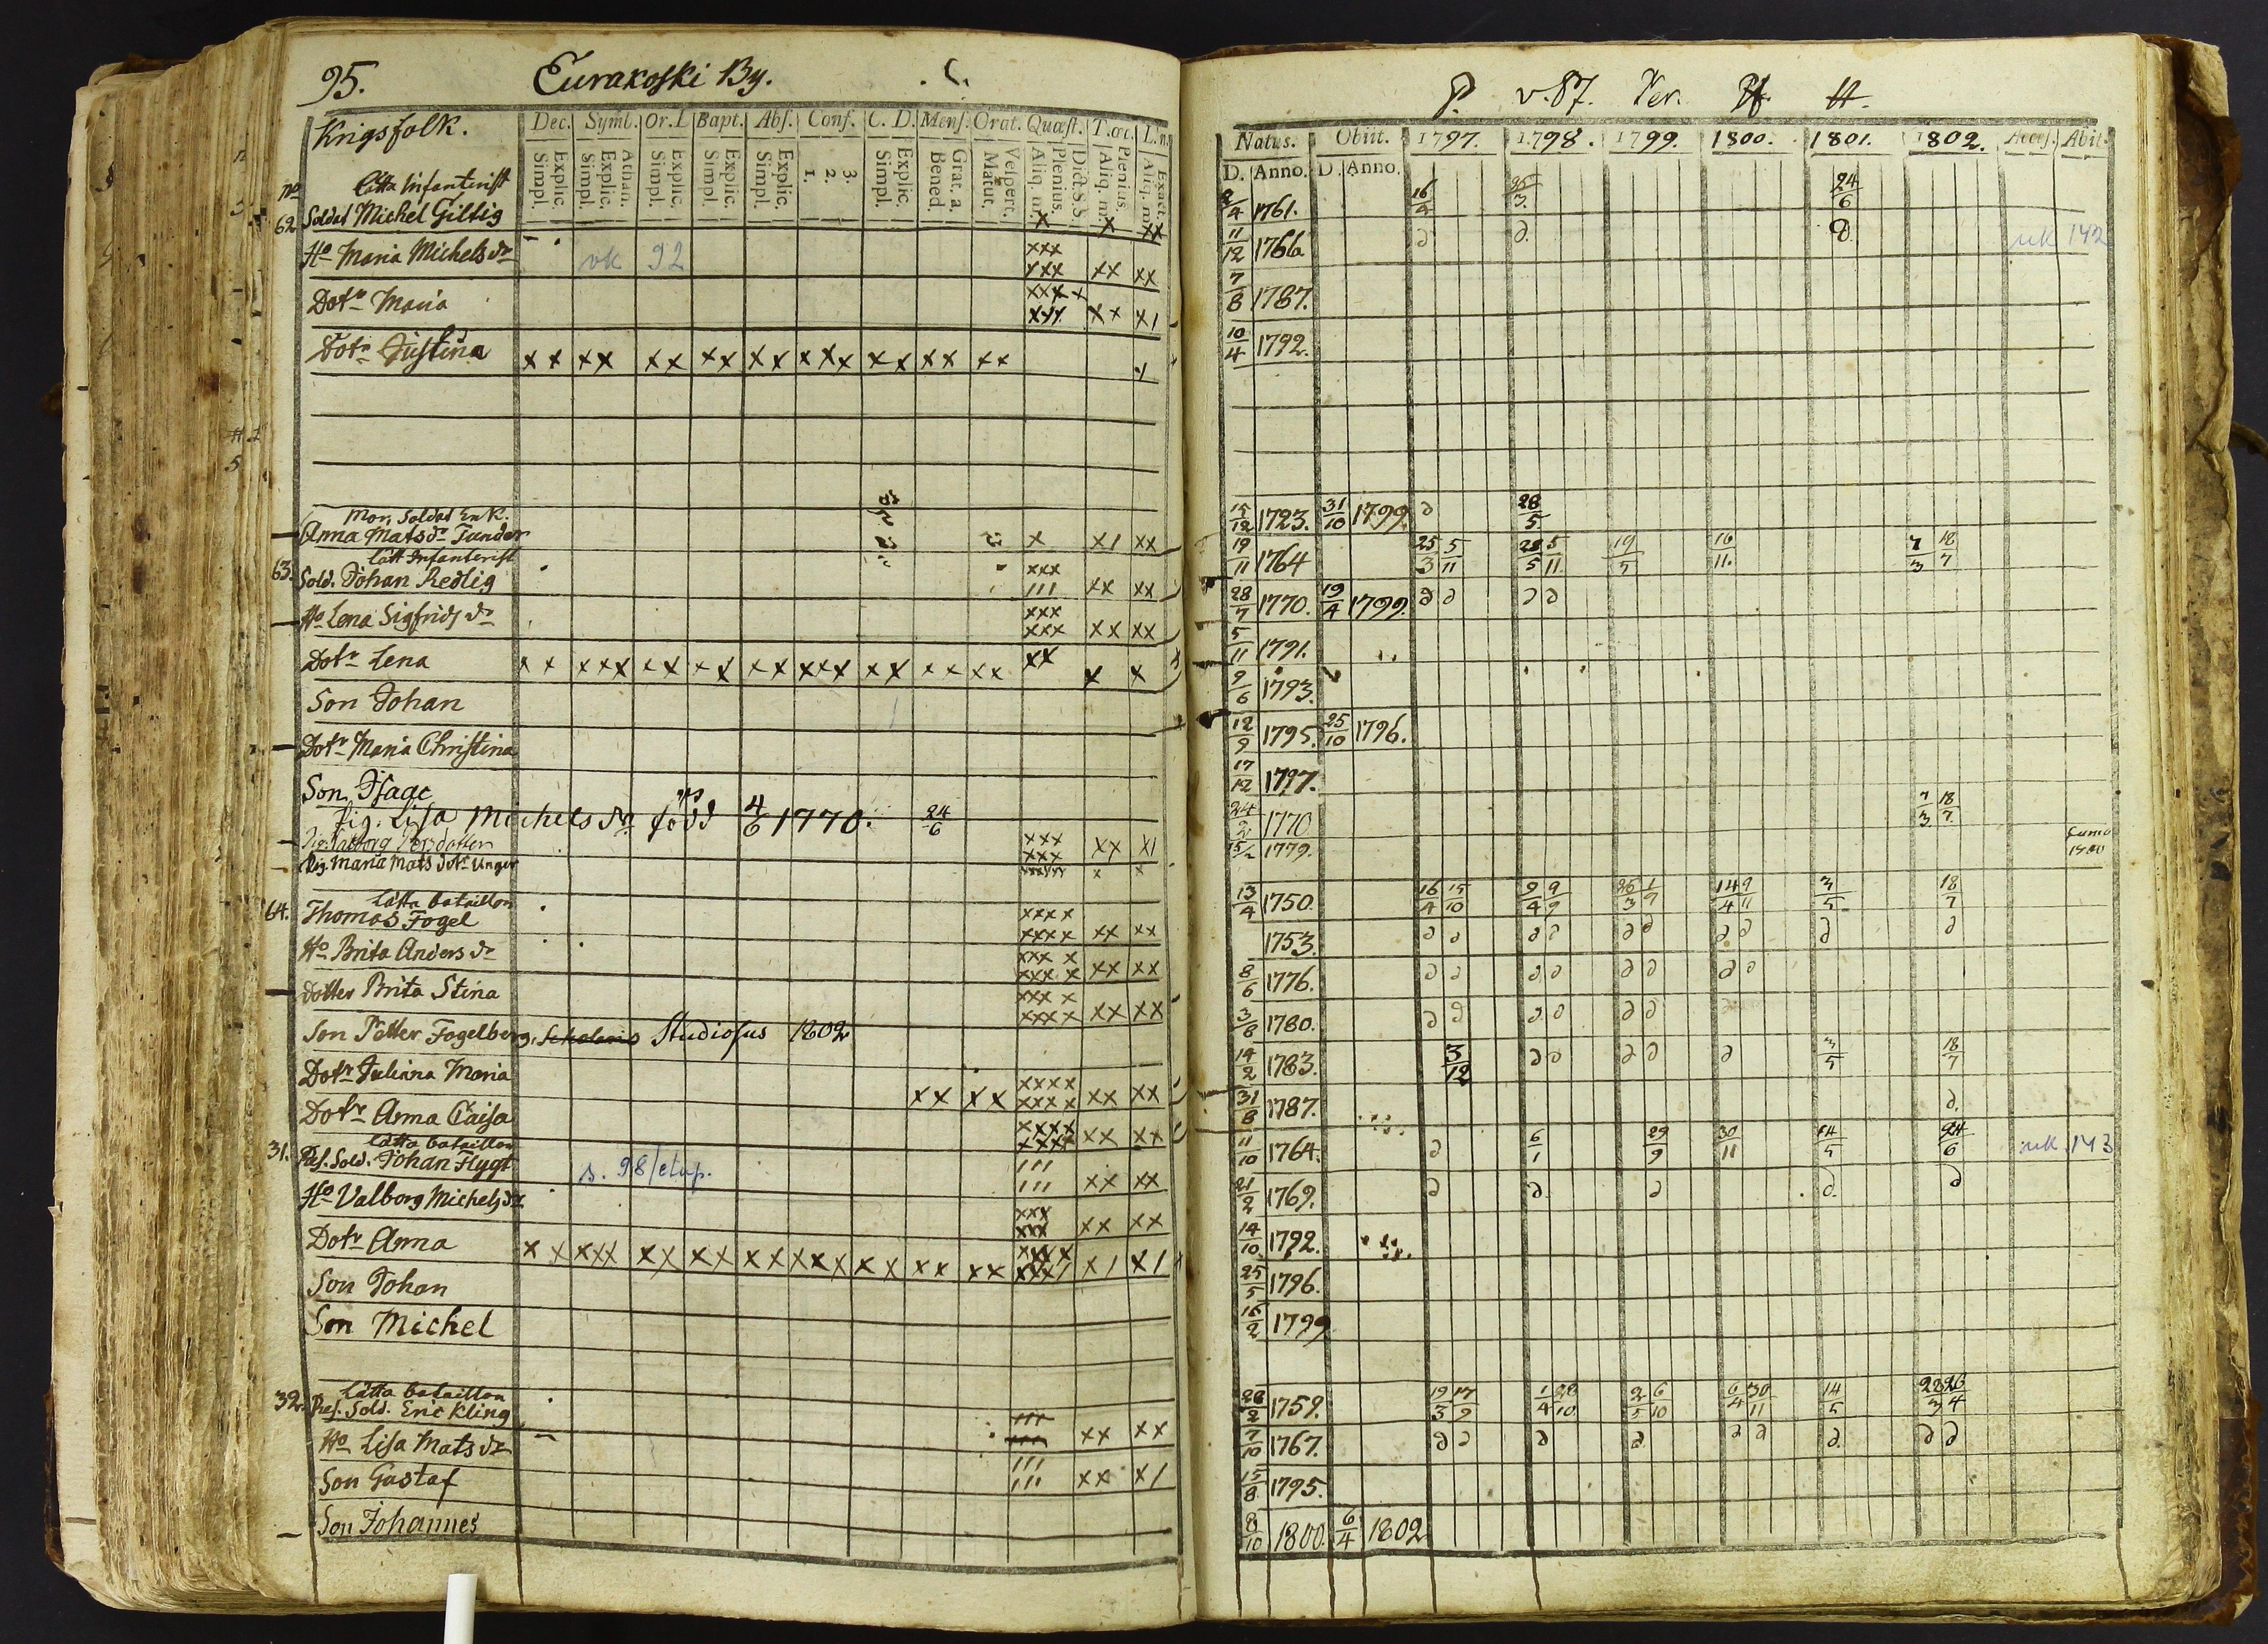 95. Eurakoski By.
Krigsfolk.
Dec. Symb. Or. L Bapt. Abs. Conf. C. D. Mens. Orat. Quæst. T. œc. L. n.
Explic. Simpl.
Athan. Explic. Simpl.
Explic. Simpl.
Explic. Simpl.
Explic. Simpl.
3. 2. 1.
Explic. Simpl.
Grat. a. Bened.
Vespert. Matut.
Dict. S. S. Plenius. Aliq. m.
Plenius. Aliq. m.
Exact. Aliq. m.
No
Lätta Infanterist
62. Soldat Michel Giltig
Ho Maria Michels dr
vk 92
Dotr Maria
Dotr Justina
Mor, Soldat Enk.
Anna Mats dr Tunder
Lätt Infanterist
63. Sold. Johan Redlig
Ho Lena Sigfrids dr
Dotr Lena
Son Johan
Dotr Maria Christina
Son Isaac
Pig. Lisa Michels dr född 4/6 1770. 24/6
Pig. Valborg Persdotter
Pig. Maria Mats dotr Unger
Lätta bataillon
64. Thomas Fogel
Ho Brita Anders dr
Dotter Brita Stina
Son Petter Fogelberg, Studiosus 1802
Dotr Juliana Maria
Dotr Anna Caisa
Lätta bataillon
31. Res. Sold. Johan Flygt
s. 98/etup.
Ho Valborg Michels dr
Dotr Anna
Son Johan
Son Michel
Lätta bataillon
32. Res. Sold. Eric Kling
Ho Lisa Mats dr
Son Gustaf
Son Johannes
P. v. 87.
Natus. Obiit. 1797. 1798. 1799. 1800. 1801. 1802. Acces. Abit.
D. Anno. D. Anno.
2/4 1761. 16/4 25/3. 24/6
11/12 1766 d d. d. uk 142
7/8 1787.
10/4 1792.
15/12 1723. 31/10 1799. d 28/5
19/11 1764 25/3 5/11 28/5 5/11 19/5 16/11. 7/3 18/7
28/7 1770. 19/4 1799. d d d d
5/11 1791.
9/6 1793.
12/9 1795. 25/10 1796.
17/12 1797.
24/9 1770 7/3 18/7
15/2 1779.
13/4 1750. 16/4 15/10 9/4 9/9 26/3 1/9 14/4 9/11 3/5 18/7
1753. d d d d d d d d d d
8/6 1776. d d d d d d d d
3/8 1780. d d d d d d
14/2 1783. 3/12 d d d d d 3/5 18/7
31/8 1787. d.
11/10 1764. d 6/1 29/9 30/11 14/5 24/6 uk 143
21/2 1769. d d. d d. d
14/10 1792.
25/5 1796.
16/2 1799
28/2 1759. 19/3 17/9 1/4 28/10 2/5 6/10 6/4 30/11 14/5 22/3 26/4
7/10 1767. d d d d d d d. d d
15/8 1795.
8/10 1800. 6/4 1802